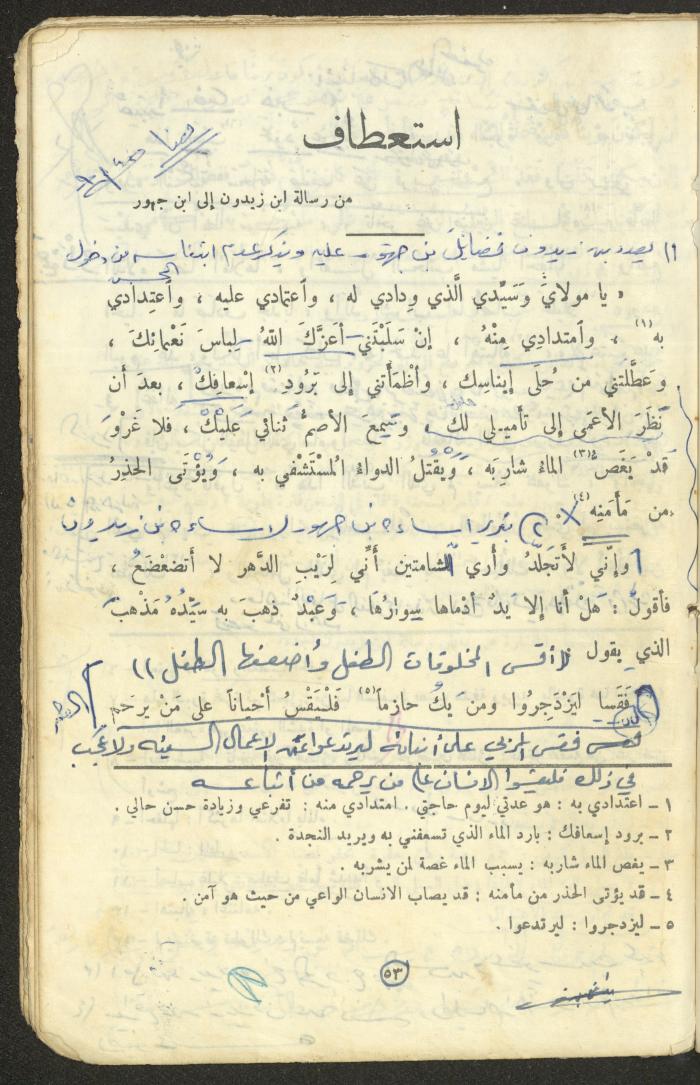 استعطاف
من رسالة ابن زيدون إلى ابن جهور
ابن زيدون فضائل بن جهور عليه ويذكر عدم من دخول
السجن
« يا مولايَ وَسَيِّدي الَّذي وِدادي له ، واعتمادي عليه ، واعتِدادي
به (١) ، وامتدادِي مِنْهُ ، إنْ سَلَبْتَني أعَزَّكَ اللهُ لِباسَ نَعْمائكَ ،
وعَطَّلْتَني من حُلَى إيناسِك ، وأظمَأتَني إلى بَرُودِ (٢) إسْعافِكَ ، بعدَ أن
نَظَرَ الأعمَى إلى تأميلي لك ، وسَمِعَ الأصمُّ ثَنائي عَلَيْكَ ، فلا غَرْوَ
قَدْ يَغَصُّ (٣) الماءُ شارِبَه ، وَيَقْتلُ الدواءُ المُسْتَشْفي به ، وَيُؤْتَى الحَذِرُ
من مَأمَنِه (٤) .
٢) اساءة بن جهور لاساءة بن زيدون
وإنّي لأتَجَلّدُ وأري الشامتين أنّي لِرَيْبِ الدَّهر لا أتضعْضَعُ ،
فأقولُ : هَلْ أنا إلا يَدٌ أدْماها سِوارُهَا ، وَعَبْدٌ ذهبَ به سَيِّدُهُ مَذْهبَ
الذي يقول
المخلوقات الطفل وأضعفها الطفل ))
فَقَسا لِيَزْدَجِرُوا ومن يَكُ حازماً (٥) فَلْيَقْسُ أحْياناً على مَنْ يرحَم
المربي على أبنائه ليرتدعوا عن الاعمال السيئة ولا عجب
في ذلك الانسان على من يرحمه من أتباعه
١ – اعتدادي به : هو عدتي ليوم حاجتي . امتدادي منه : تفرعي وزيادة حسن حالي .
٢ – برود إسعافك : بارد الماء الذي تسعفني به ويريد النجدة .
٣ – يغص الماء شاربه : يسبب الماء غصة لمن يشربه .
٤ – قد يؤتى الحذر من مأمنه : قد يصاب الانسان الواعي من حيث هو آمن .
٥ – ليزدجروا : ليرتدعوا .
٥٣